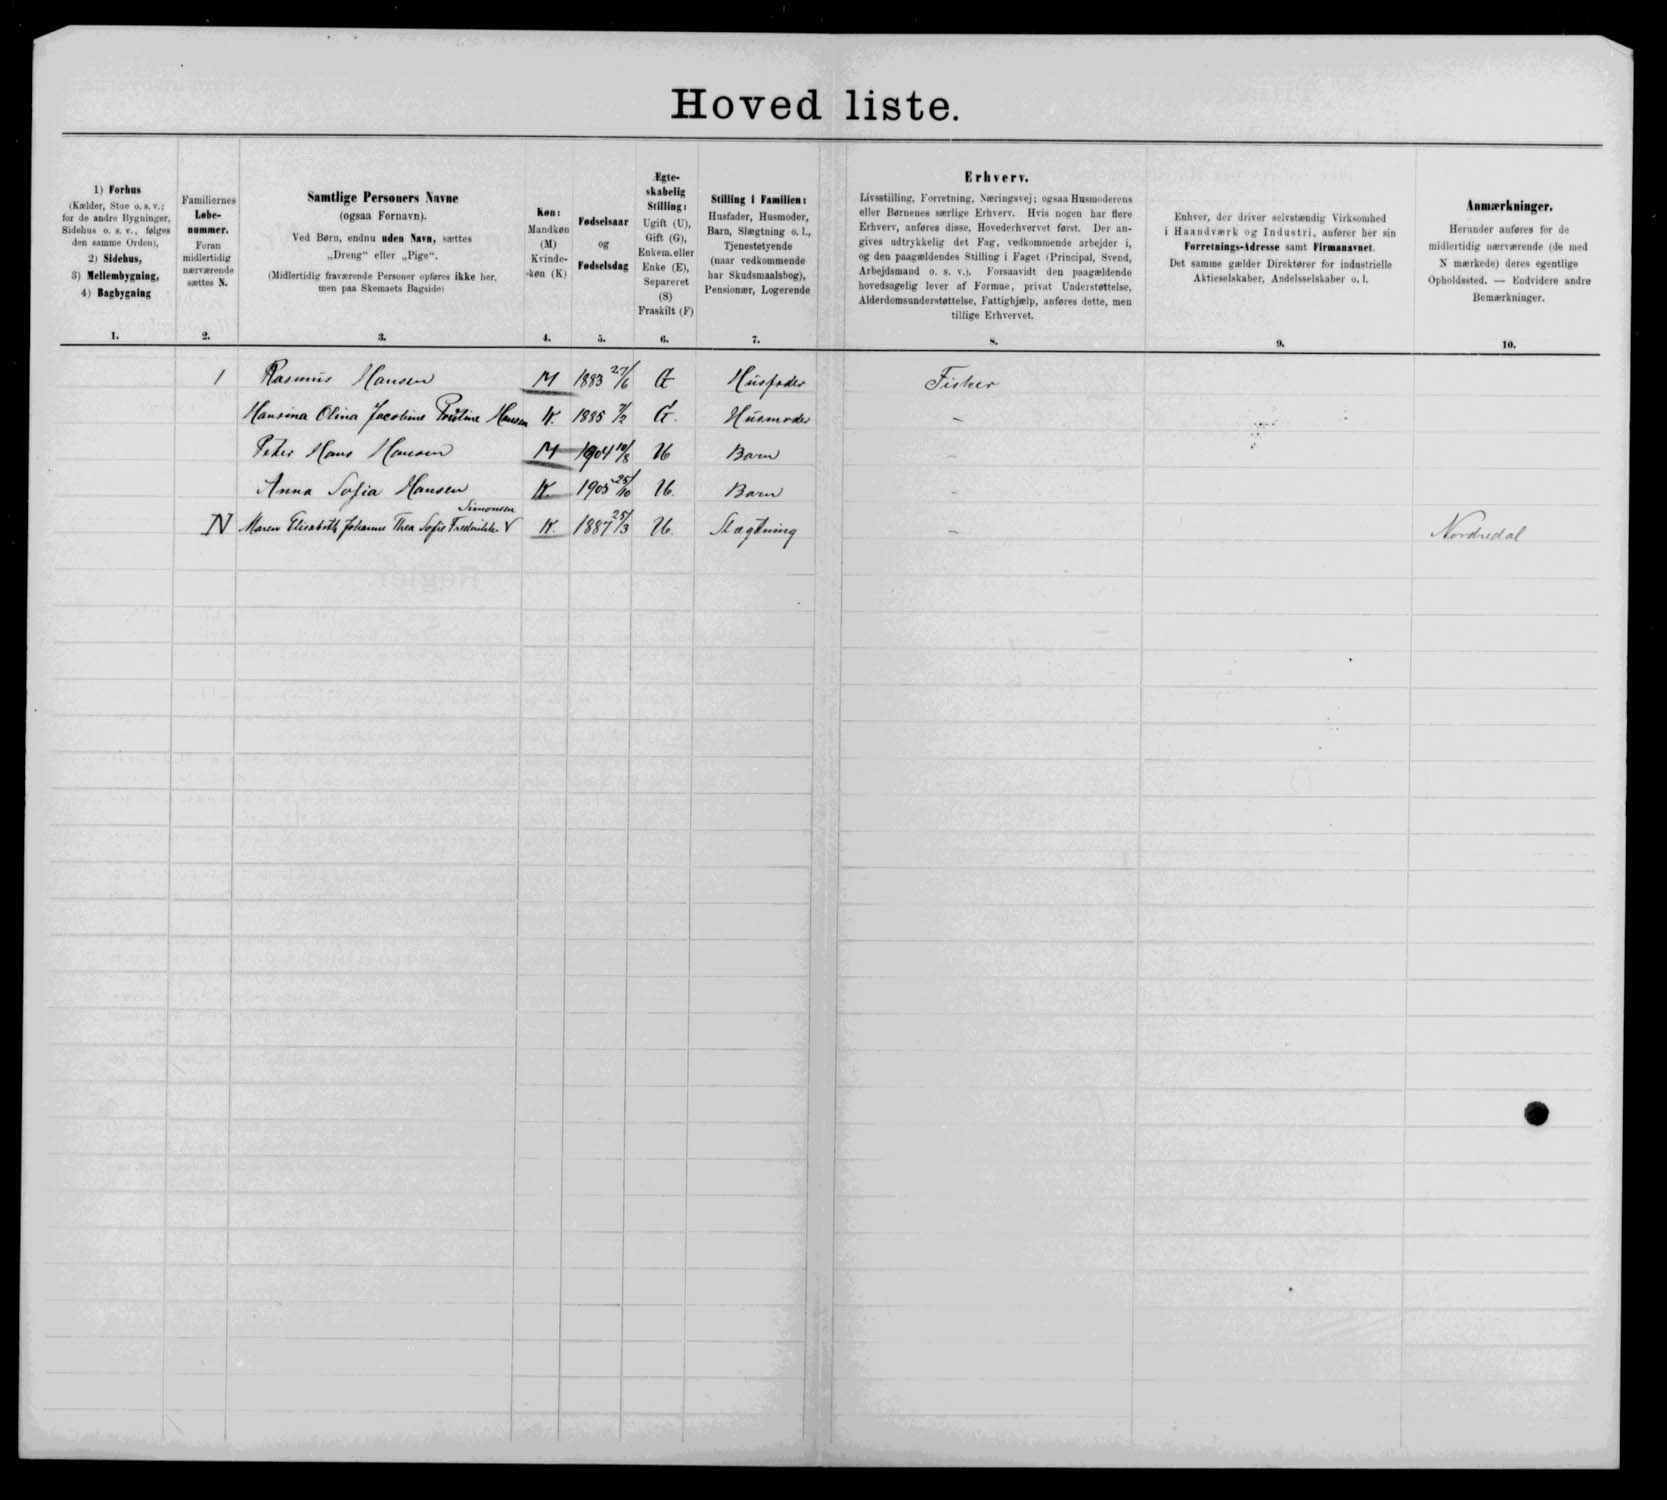 Hoved liste.
1) Forhus
(Kælder, Stue o. s. v.;
for de andre Bygninger,
Sidehus o. s. v., følges
den samme Orden),
2) Sidehus,
3) Mellembygning,
4) Bagbygning
1.
Familiernes
Løbe-
nummer.
Foran
midlertidig
nærværende
sættes N.
2.
Samtlige Personers Navne
(ogsaa Fornavn).
Ved Børn, endnu uden Navn, sættes
„Dreng“ eller „Pige“.
(Midlertidig fraværende Personer opføres ikke her,
men paa Skemaets Bagside)
3.
Køn:
Mandkøn
(M)
Kvinde-
køn (K)
4.
Fødselsaar
og
Fødselsdag
5.
Ægte-
skabelig
Stilling:
Ugift (U),
Gift (G),
Enkem. eller
Enke (E),
Separeret
(S)
Fraskilt (F)
6.
Stilling i Familien:
Husfader, Husmoder,
Barn, Slægtning o. l.,
Tjenestetyende
(naar vedkommende
har Skudsmaalsbog),
Pensionær, Logerende
7.
Erhverv.
Livsstilling, Forretning, Næringsvej; ogsaa Husmoderens
eller Børnenes særlige Erhverv. Hvis nogen har flere
Erhverv, anføres disse, Hovederhvervet først. Der an-
gives udtrykkelig det Fag, vedkommende arbejder i,
og den paagældendes Stilling i Faget (Principal, Svend,
Arbejdsmand o. s. v.). Forsaavidt den paagældende
hovedsagelig lever af Formue, privat Understøttelse,
Alderdomsunderstøttelse, Fattighjælp, anføres dette, men
tillige Erhvervet.
8.
Enhver, der driver selvstændig Virksomhed
i Haandværk og Industri, anfører her sin
Forretnings-Adresse samt Firmanavnet.
Det samme gælder Direktører for industrielle
Aktieselskaber, Andelsselskaber o. l.
9.
Anmærkninger.
Herunder anføres for de
midlertidig nærværende (de med
N mærkede) deres egentlige
Opholdssted. — Endvidere andre
Bemærkninger.
10.
1 Rasmus Hansen M 1883 27/6 G Husfader Fisker
Hansina Olina Jacobine Hansen K. 1885 7/2 G. Husmoder –
Peter Hans Hansen M 1904 10/8 U Barn –
Anna Sofia Hansen K. 1905 25/10 U. Barn –
Simonsen
N Maren Elisabeth Johanne Thea Sofie Frederikke V K. 1887 25/3 U. Slægtning – Nordredal